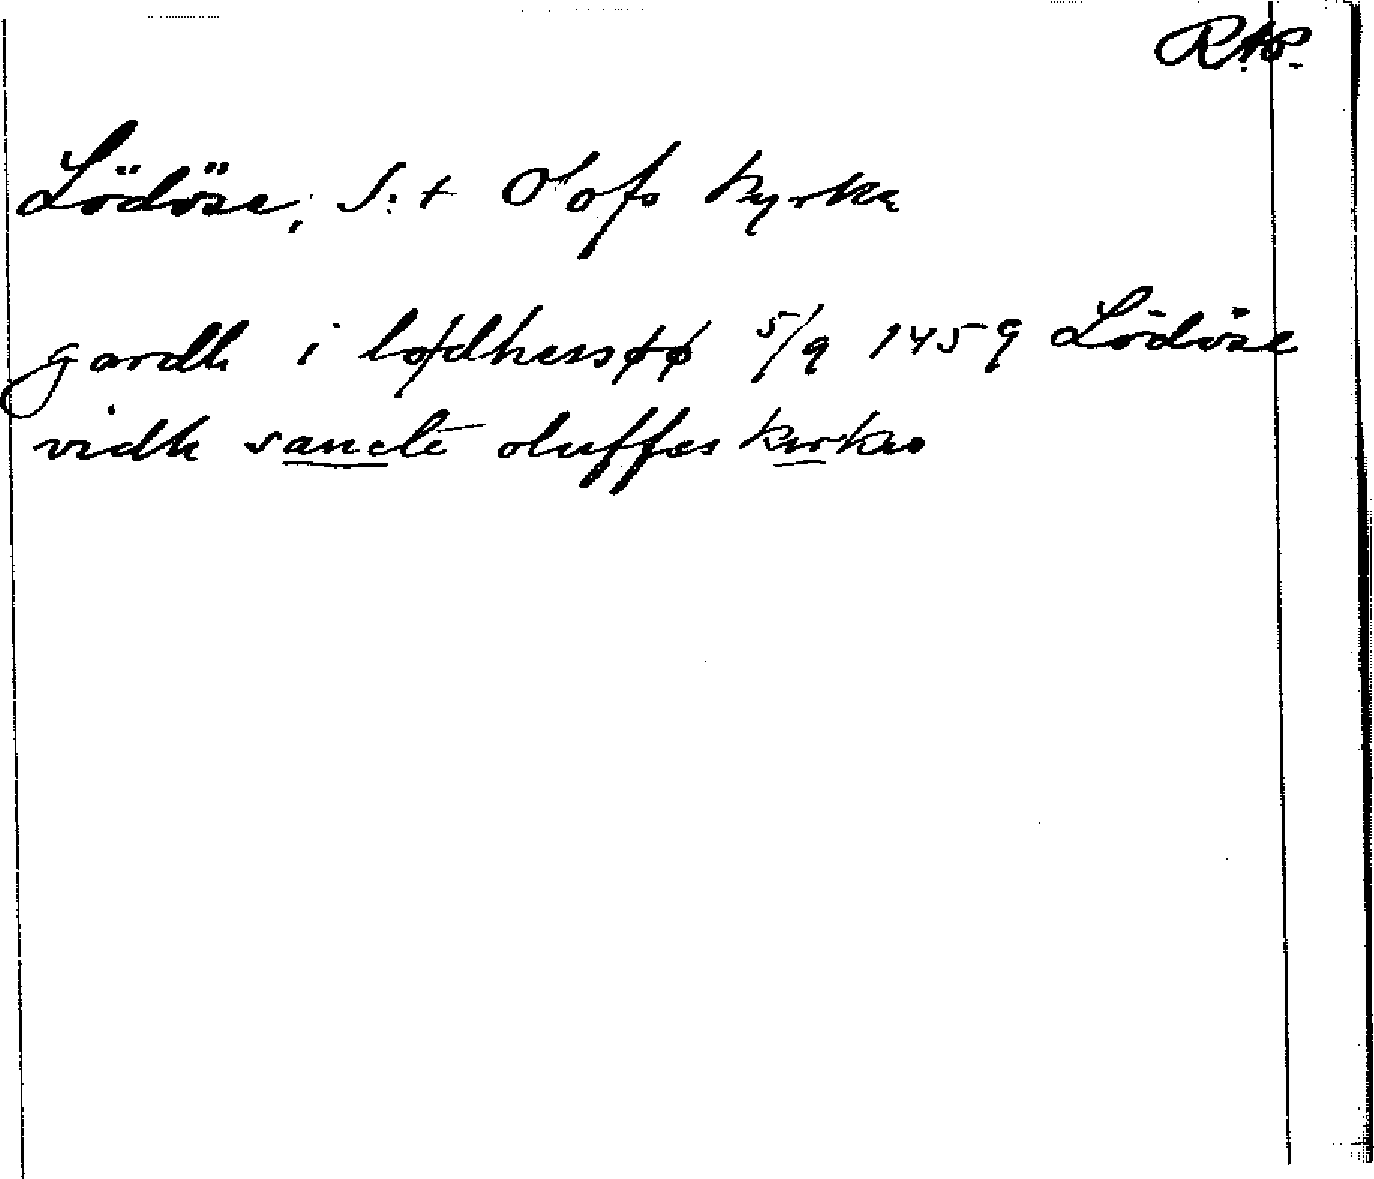 R.A.P.
Lödöse, S:t Olofs kyrka
gardh i lødhersøø 5/9 1459 Lödöse
vidh sancte oluffes kirkæ